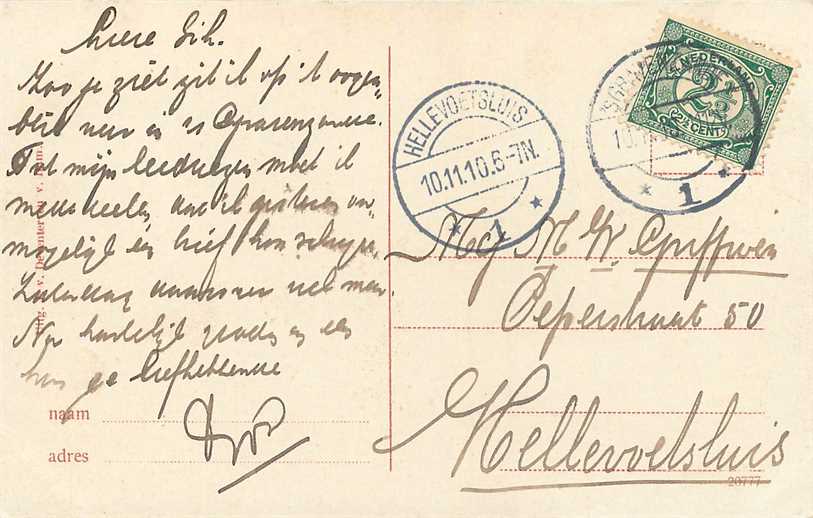 Lieve Sih.
Zoo je ziet zit ik op 't oogen-
blik weer in 's Gravenzande.
Tot mijn leedwezen moet ik
mededeelen dat ik gisteren on-
mogelijk een brief kon schrijven.
Zaterdag
Nu hartelijk gegroet en een
kus je liefhebbende
naam
adres
HELLEVOETSLUIS
10.11.10.6-7N.
1
NEDERLAND
2½
(2½ CENT)
1
Mej M. W. Griffioen
Peperstraat 50
Hellevoetsluis
20777